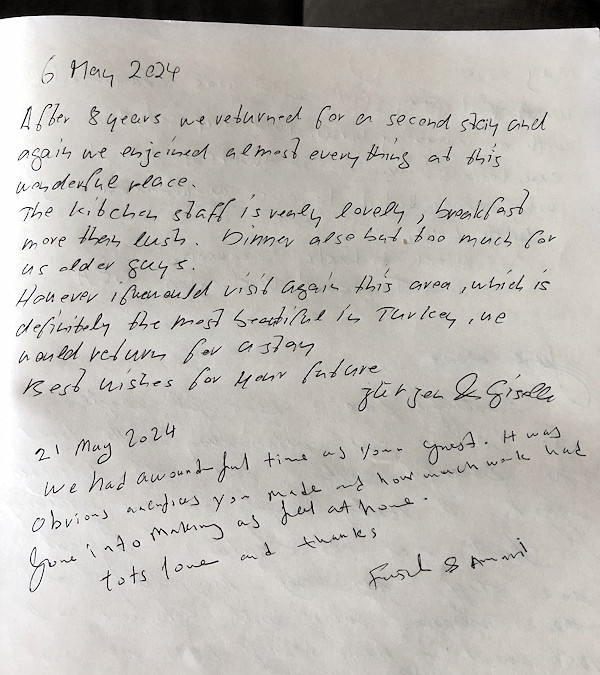 6 May 2024
After 8 years we returned for a second stay and
again we enjoined almost everything at this
wonderful place.
The kitchen staff is really lovely, breakfast
more then lush. Dinner also but too much for
us older guys.
However if we would visit again this area, which is
definitely the most beautiful in Turkey, we
would return for a stay
Best wishes for your future
Jürgen & Gisela
21 May 2024
We had a wounderful time as your guest. It was
Obvious you made and how much work had
gone into making as feel at home.
Lots love and thanks